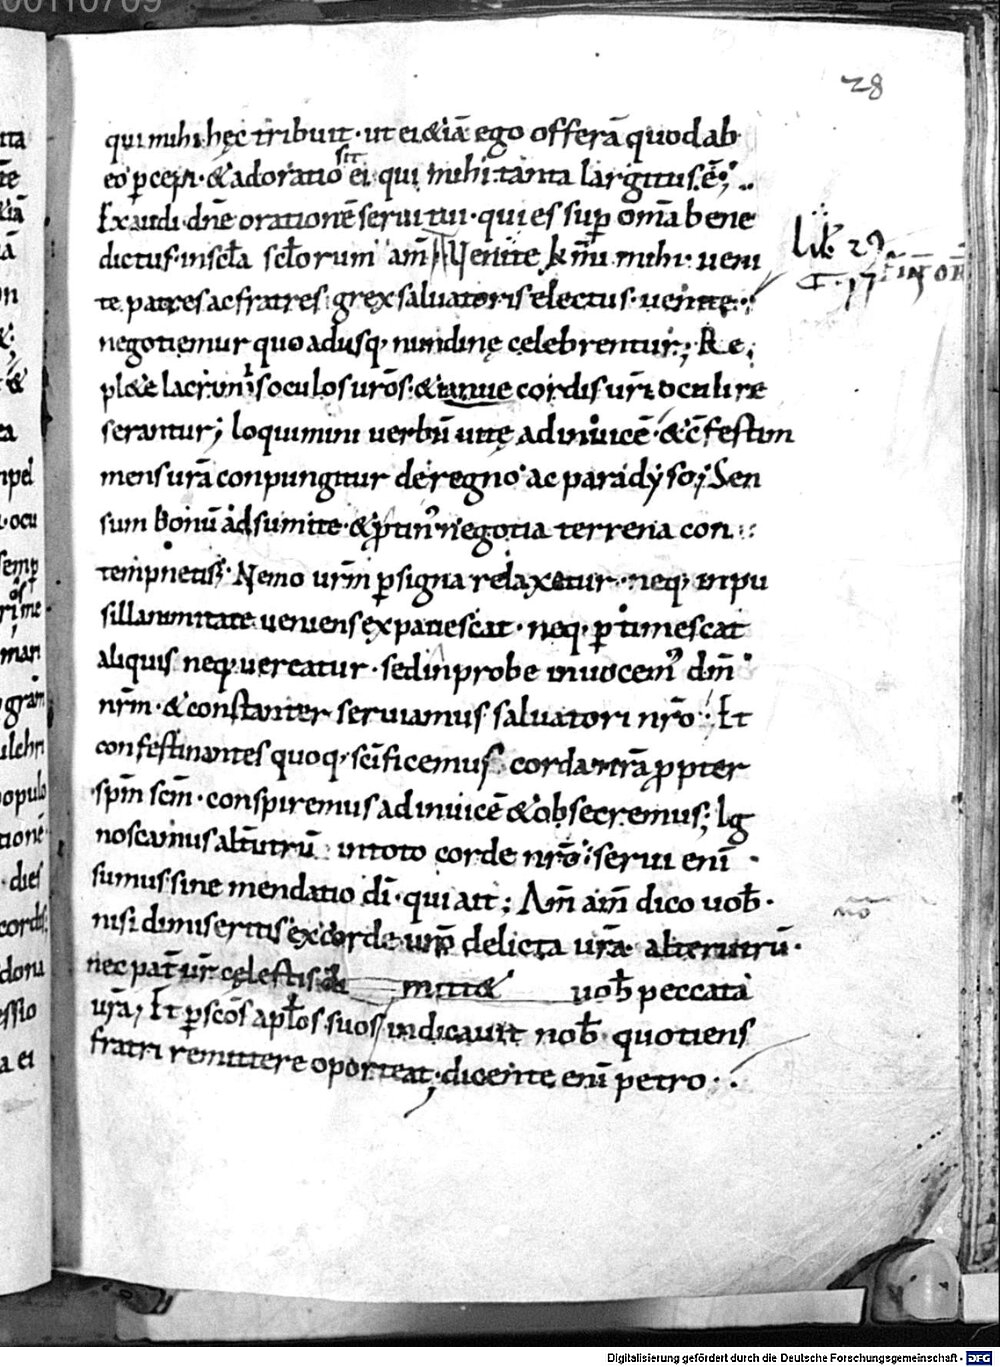 28
qui mihi hęc tribuit · ut ei & iā ego offerā quod ab
eo p̱cepi · & adoratio sit ei qui mihi tanta largitus.ē;
Exaudi dn̄e orationē serui tui · qui es sup̱ om̄a bene
dictus · in sc̄la sc̄lorum am̄ Venite km̄i mihi · ueni
te patres ac fratres · grex saluatoris electus · uenite ·
negotiemur quo adusq; nundinę celebrentur; Re
pl&e lacrimis oculos uros · & ianue cordis ur̄i oculi re
serantur; loquimini uerbū uitę ad inuicē · & c̄festim
mens urā conpungitur de regno ac paradyso; Sen
sum bonū adsumite · & p̱tin' negotia terrena con
tempnetis; Nemo urm̄ p̱ signa relaxetur · neq; inpu
sillanimitate ueniens expauescat · neq; p̱timescat
aliquis neq; uereatur · sed inprobe inuocem' dm̄
nr̄m · & constanter seruiamus saluatori nr̄o · Et
confestinantes quoq; sc̄ificemus corda nr̄a p̱pter
sp̄m sc̄m · conspiremus ad inuicē & obsecremus; Ig
noscamus alt̄utrū in toto corde nr̄o · serui enī
sumus sine mendatio dī · qui ait; Am̄ am̄ dico uob̄ ·
nisi dimiseritis ex corde uro delicta ur̄a alterutrū ·
nec pat̄ ur̄ cęlestis mitt& uob̄ peccata
ur̄a; Et p̱ sc̄os apl̄os suos indicauit nob̄ quotiens
fratri remittere oporteat; dicente enī petro ·
lib̄ 29
no
Digitalisierung gefördert durch die Deutsche Forschungsgemeinschaft - DFG